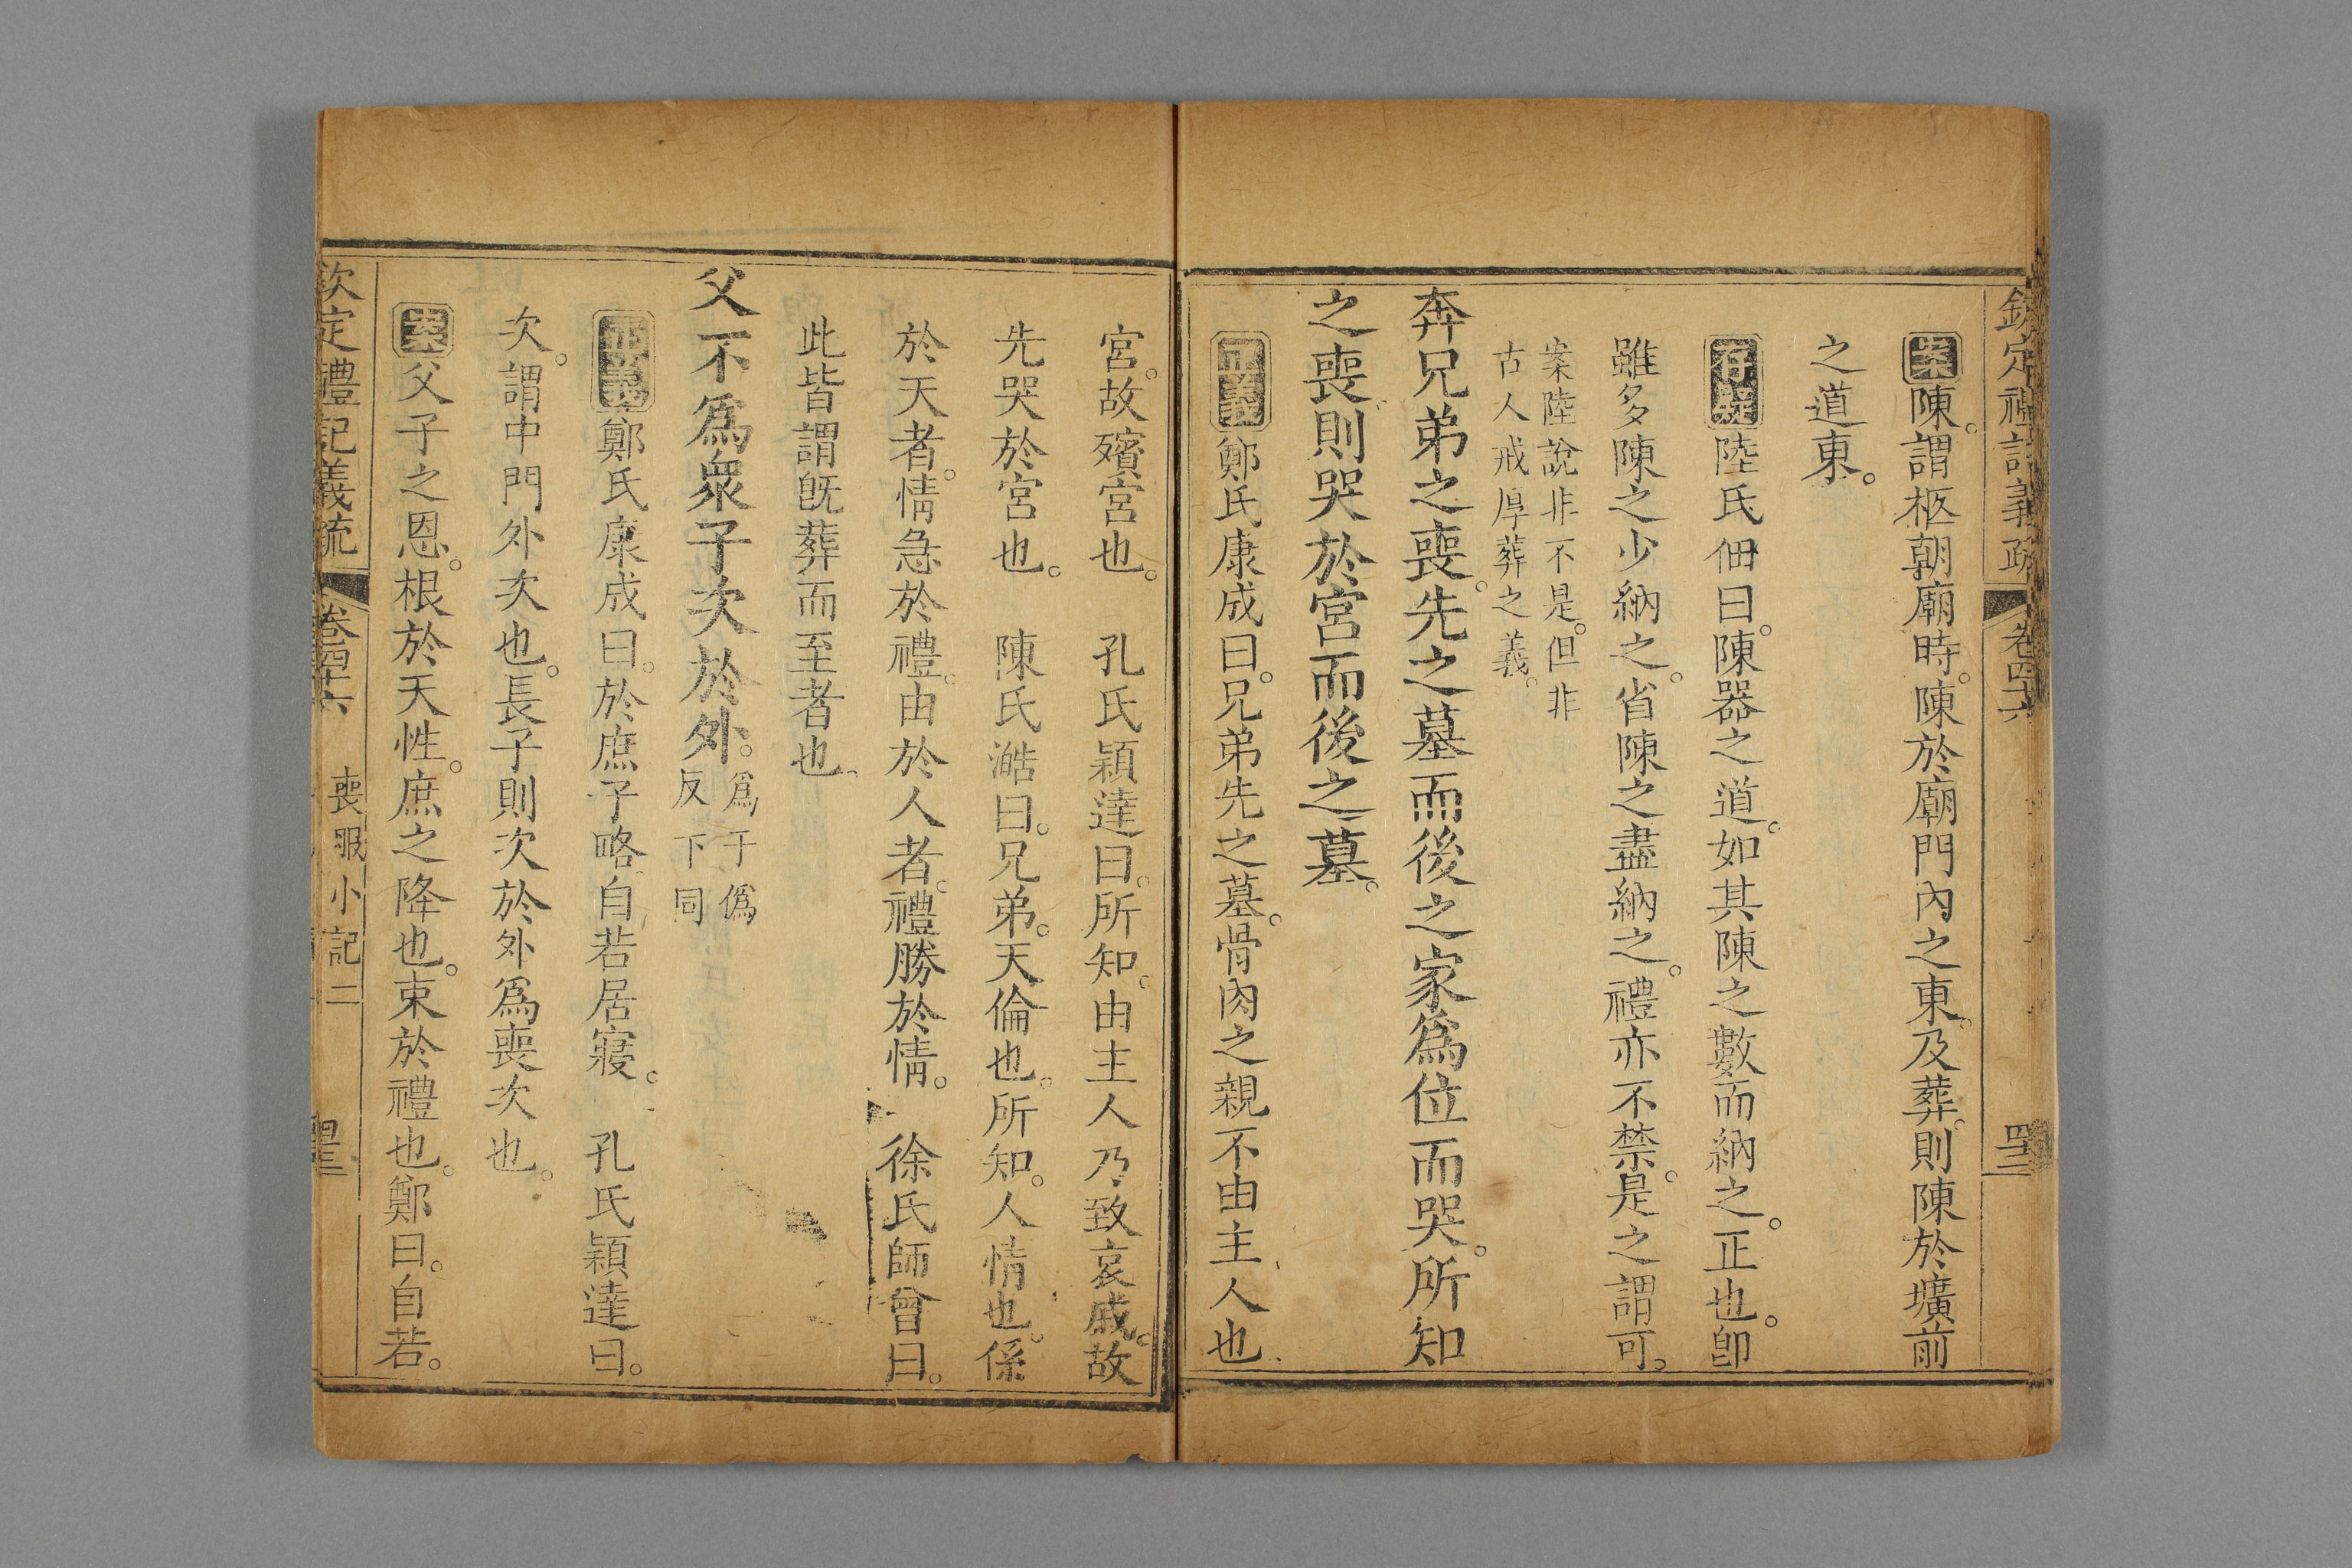 欽定禮記義疏 卷四十六 四三
案陳。謂柩朝廟時。陳於廟門內之東。及葬。則陳於壙前
之道東。
存疑陸氏佃曰。陳器之道。如其陳之數而納之。正也。卽
雖多陳之少納之。省陳之盡納之。禮亦不禁。是之謂可。
案陸說非不是。但非
古人戒厚葬之義。
奔兄弟之喪。先之墓而後之家為位而哭。所知
之喪。則哭於宮而後之墓。
正義鄭氏康成曰。兄弟先之墓。骨肉之親不由主人也
宮。故殯宮也。 孔氏穎達曰。所知。由主人乃致哀戚。故
先哭於宮也。 陳氏澔曰。兄弟。天倫也。所知。人情也。係
於天者。情急於禮。由於人者。禮勝於情。 徐氏師曾曰。
此皆謂旣葬而至者也。
父不爲衆子次於外。
爲于僞
反下同
正義鄭氏康成曰。於庶子略。自若居寢。 孔氏穎達曰。
次。謂中門外次也。長子則次於外爲喪次也。
案父子之恩。根於天性。庶之降也。束於禮也。鄭曰。自若。
欽定禮記義疏 卷四十六 喪服小記二